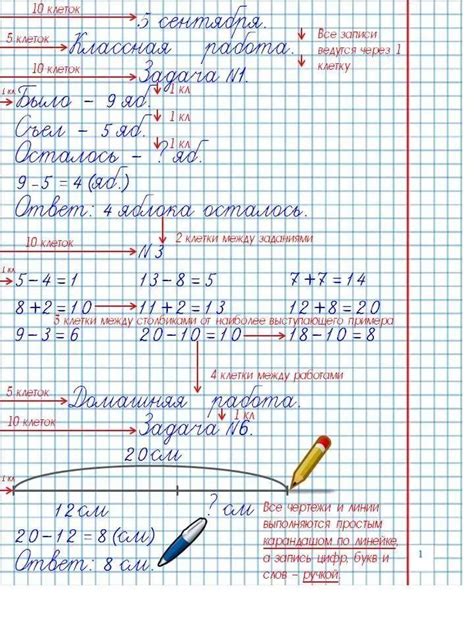 10 клеток 5 сентября.
5 клеток Классная работа.
Все записи
ведутся через 1
клетку
10 клеток Задача №1.
1 кл Было – 9 яб. 1 кл
Съел – 5 яб. 1 кл
Осталось – ? яб. 1 кл
9 – 5 = 4 (яб.)
Ответ: 4 яблока осталось.
2 клетки между заданиями
10 клеток №3
1 кл 5 – 4 = 1 13 – 8 = 5 7 + 7 = 14
8 + 2 = 10 11 + 2 = 13 12 + 8 = 20
3 клетки между столбиками от наиболее выступающего примера
9 – 3 = 6 20 – 10 = 10 18 – 10 = 8
4 клетки между работами
5 клеток Домашняя работа.
1 кл
10 клеток Задача №6.
20 см
1 кл
12 см ? см
20 – 12 = 8 (см)
Ответ: 8 см.
Все чертежи и линии
выполняются простым
карандашом по линейке,
а запись цифр, букв и
слов – ручкой
1